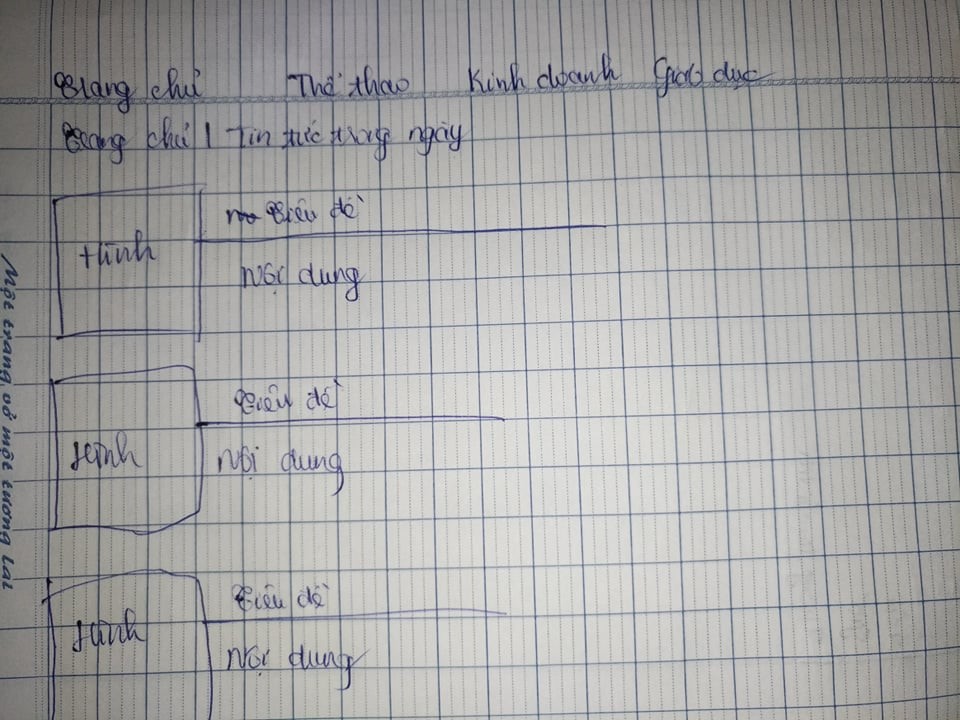 Trang chủ Thể thao Kinh doanh Giáo dục
Trang chủ / Tin tức trong ngày
Hình
Tiêu đề
Nội dung
Hình
Tiêu đề
Nội dung
Hình
Tiêu đề
Nội dung
Một trang vở một tương lai